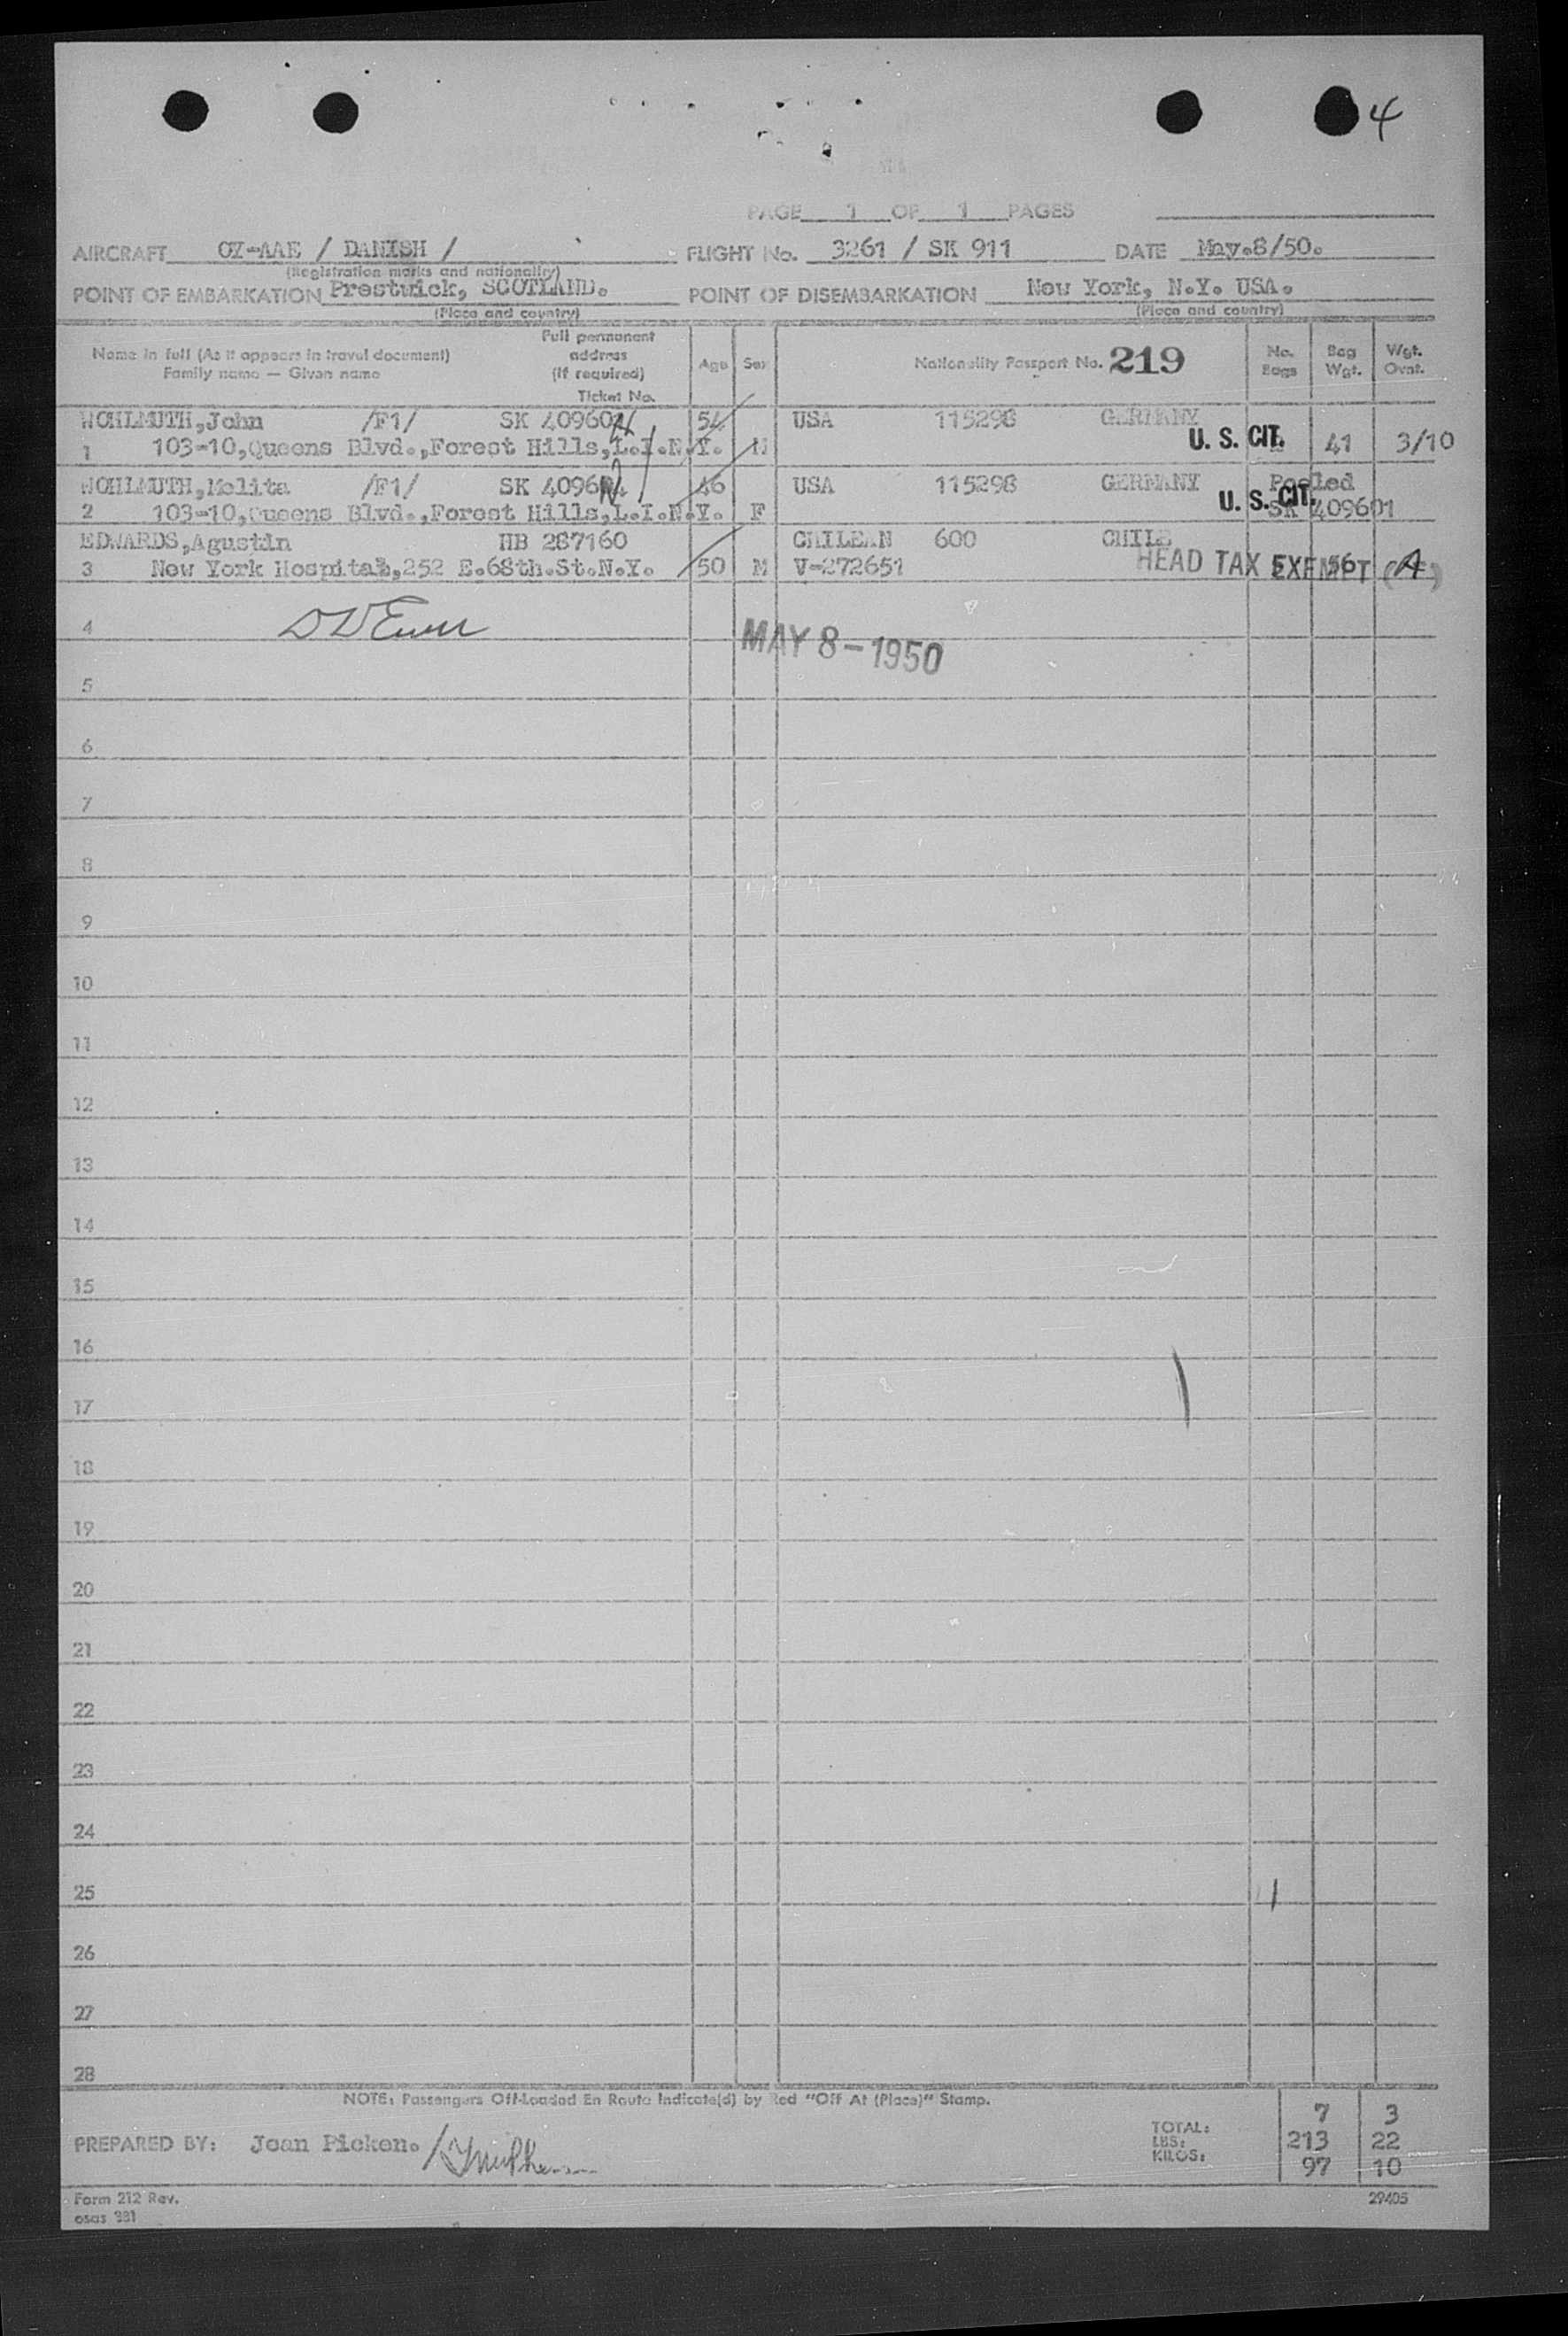 4
PAGE 1 OF 1 PAGES
AIRCRAFT OY-AAE / DANISH / FLIGHT No. 3261 / SK 911 DATE May.8/50.
(Registration marks and nationality)
POINT OF EMBARKATION Prestwick, SCOTLAND. POINT OF DISEMBARKATION New York, N.Y. USA.
(Place and country) (Place and country)
Name in full (As it appears in travel document) Full permanent address (If required) Age Sex Nationality Passport No. 219 No. Bags Bag Wgt. Wgt. Ovnt.
Family name — Given name Ticket No.
WOHLMUTH,John /F1/ SK 409601 54 USA 115298 GERMANY
1 103-10,Queens Blvd.,Forest Hills,L.I.N.Y. M U. S. CIT. 41 3/10
WOHLMUTH,Melita /F1/ SK 40960 46 USA 115298 GERMANY Pooled
2 103-10,Queens Blvd.,Forest Hills,L.I.N.Y. F U. S. CIT. SK 409601
EDWARDS,Agustin HB 287160 CHILEAN 600 CHILE
3 New York Hospital,252 E.68th.St.N.Y. 50 M V-272651 HEAD TAX EXEMPT 5 56 (A)
4
MAY 8 - 1950
5
6
7
8
9
10
11
12
13
14
15
16
17
18
19
20
21
22
23
24
25
26
27
28
NOTE: Passengers Off-Loaded En Route Indicate(d) by Red "Off At (Place)" Stamp.
TOTAL: 7 3
PREPARED BY: Joan Picken. LBS: 213 22
KILOS: 97 10
Form 212 Rev. 29405
osas 331